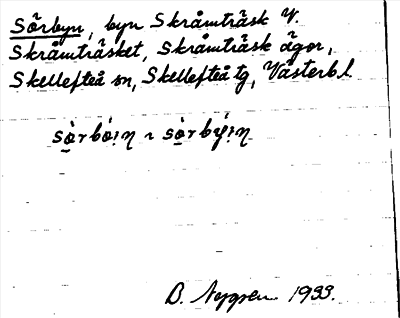 Sörbyn, byn Skråmträsk V.
Skråmträsket, Skråmträsk ägor,
Skellefteå sn, Skellefteå tg, Västerb.l.
B. Nygren 1933.